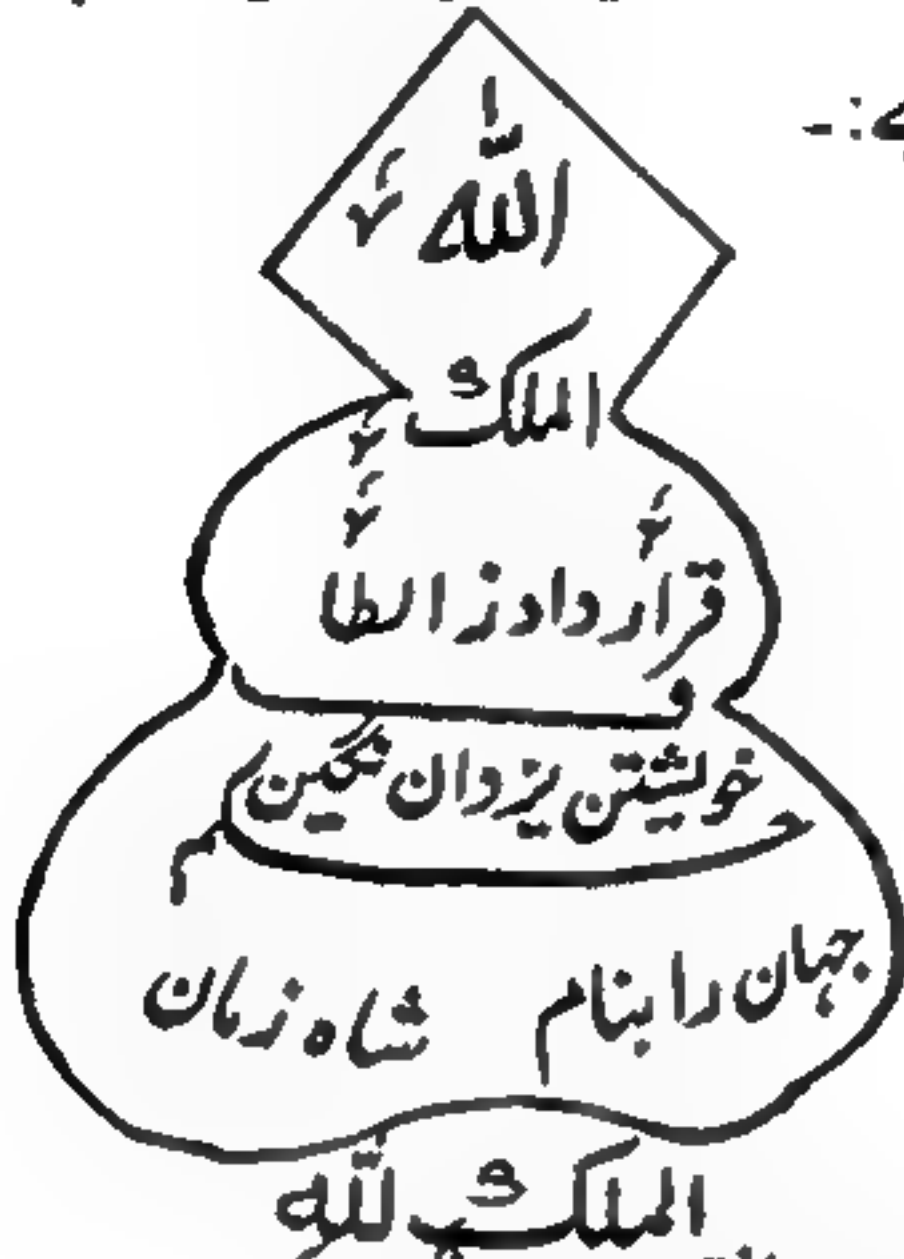 اللّٰہ
الملک
قرار داد ز الطا
ف
خویشتن یزدان نگین
حکم
جہان را بنام شاہ زمان
الملک للّٰہ